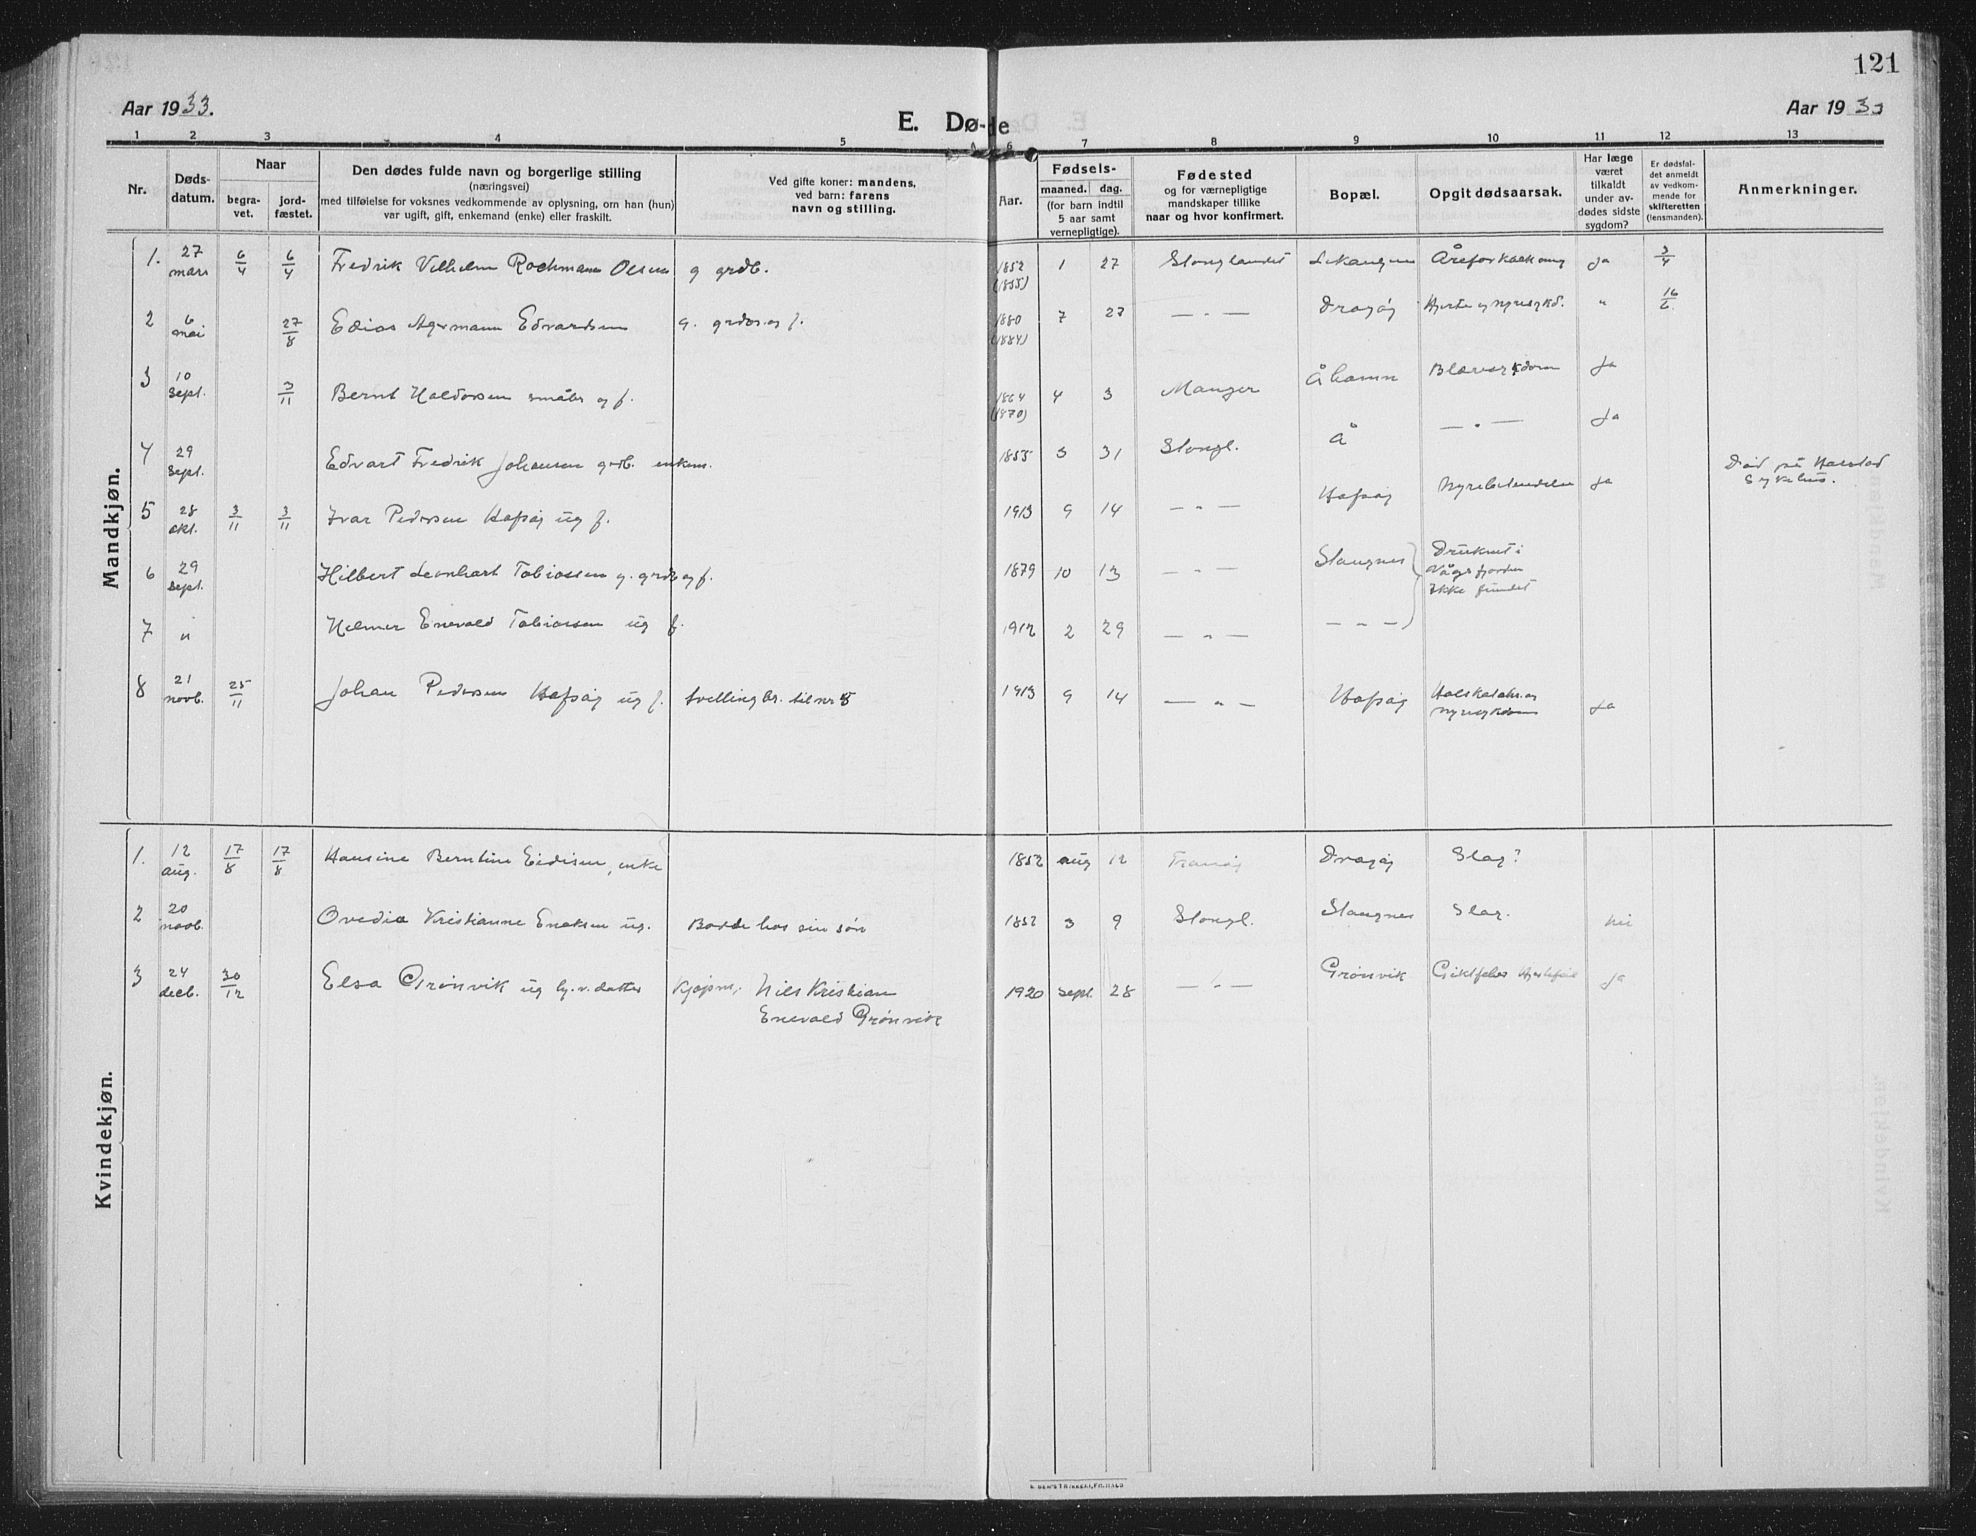 121
Aar 1933.
E. Døde
Aar 1933
1 2 3 4 5 6 7 8 9 10 11 12 13
Nr.
Døds-
datum.
Naar
begra-
vet.
jord-
fæstet.
Den dødes fulde navn og borgerlige stilling
(næringsvei)
med tilføielse for voksnes vedkommende av oplysning, om han (hun)
var ugift, gift, enkemand (enke) eller fraskilt.
Ved gifte koner: mandens,
ved barn: farens
navn og stilling.
Aar.
Fødsels-
maaned. dag.
(for barn indtil
5 aar samt
vernepligtige).
Fødested
og for værnepligtige
mandskaper tillike
naar og hvor konfirmert.
Bopæl.
Opgit dødsaarsak.
Har læge
været
tilkaldt
under av-
dødes sidste
sygdom?
Er dødsfal-
det anmeldt
av vedkom-
mende for
skifteretten
(lensmanden).
Anmerkninger.
Mandkjøn.
1. 27 mars 6/4 6/4 Fredrik Vilhelm Rochmann Olsen g grdb. 1852 (1855) 1 27 Stonglandet Åreforkalkning ja 3/4
2 6 mai 27/8 Edias Agermann Edvardsen g. grdbr. og f. 1880 (1884) 7 27 — „ — Dragøy Hjerte og nyresykd. „ 16/6
3 10 sept. 3/11 Bernt Haldorsen småbr og f. 1864 (1870) 4 3 Manger Åhamn Blæresykdom Ja
4 29 sept. Edvart Fredrik Johansen grdb. enkem. 1855 3 31 Stongl. Å — „ — Ja Død på Harstad
Sykehus.
5 28 okt. 3/11 3/11 Ivar Pedersen Hofsøy ug f. 1913 9 14 — „ — Hofsøy Nyrebetendelse Ja
6 29 sept. Hilbert Leonhart Tobiassen g. grdb og f. 1879 10 13 — „ — Stangnes Druknet i
Vågsfjorden
Ikke fundet
7 „ Helmer Enevald Tobiassen ug f. 1912 2 29 — „ — — „ —
8 21 novb. 25/11 Johan Pedersen Hofsøy ug f. tvillingbr. til nr 5 1913 9 14 — „ — Hofsøy Halskatahr og
nyresykdom Ja
Kvindekjøn.
1. 12 aug. 17/8 17/8 Hansine Berntine Eidisen, enke 1852 aug 12 Tranøy Dragøy Slag?
2 20 novb. Ovedia Kristianne Enoksen ug. Bodde hos sin søn 1852 3 9 Stongl. Stangnes Slag. nei
3 24 decb. 30/12 Elsa Grønvik ug hj. v. datter Kjøpm. Nils Kristian
Enevald Grønvik 1920 Sept. 28 — „ — Grønvik Giktfeber Hjertefeil Ja